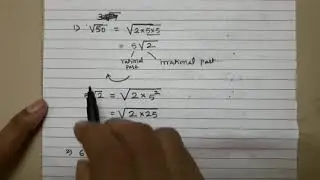 1) √50 = √2×5×5
= 5√2
rational part irrational part
√2 = √2×5²
= √2×25
2) 6